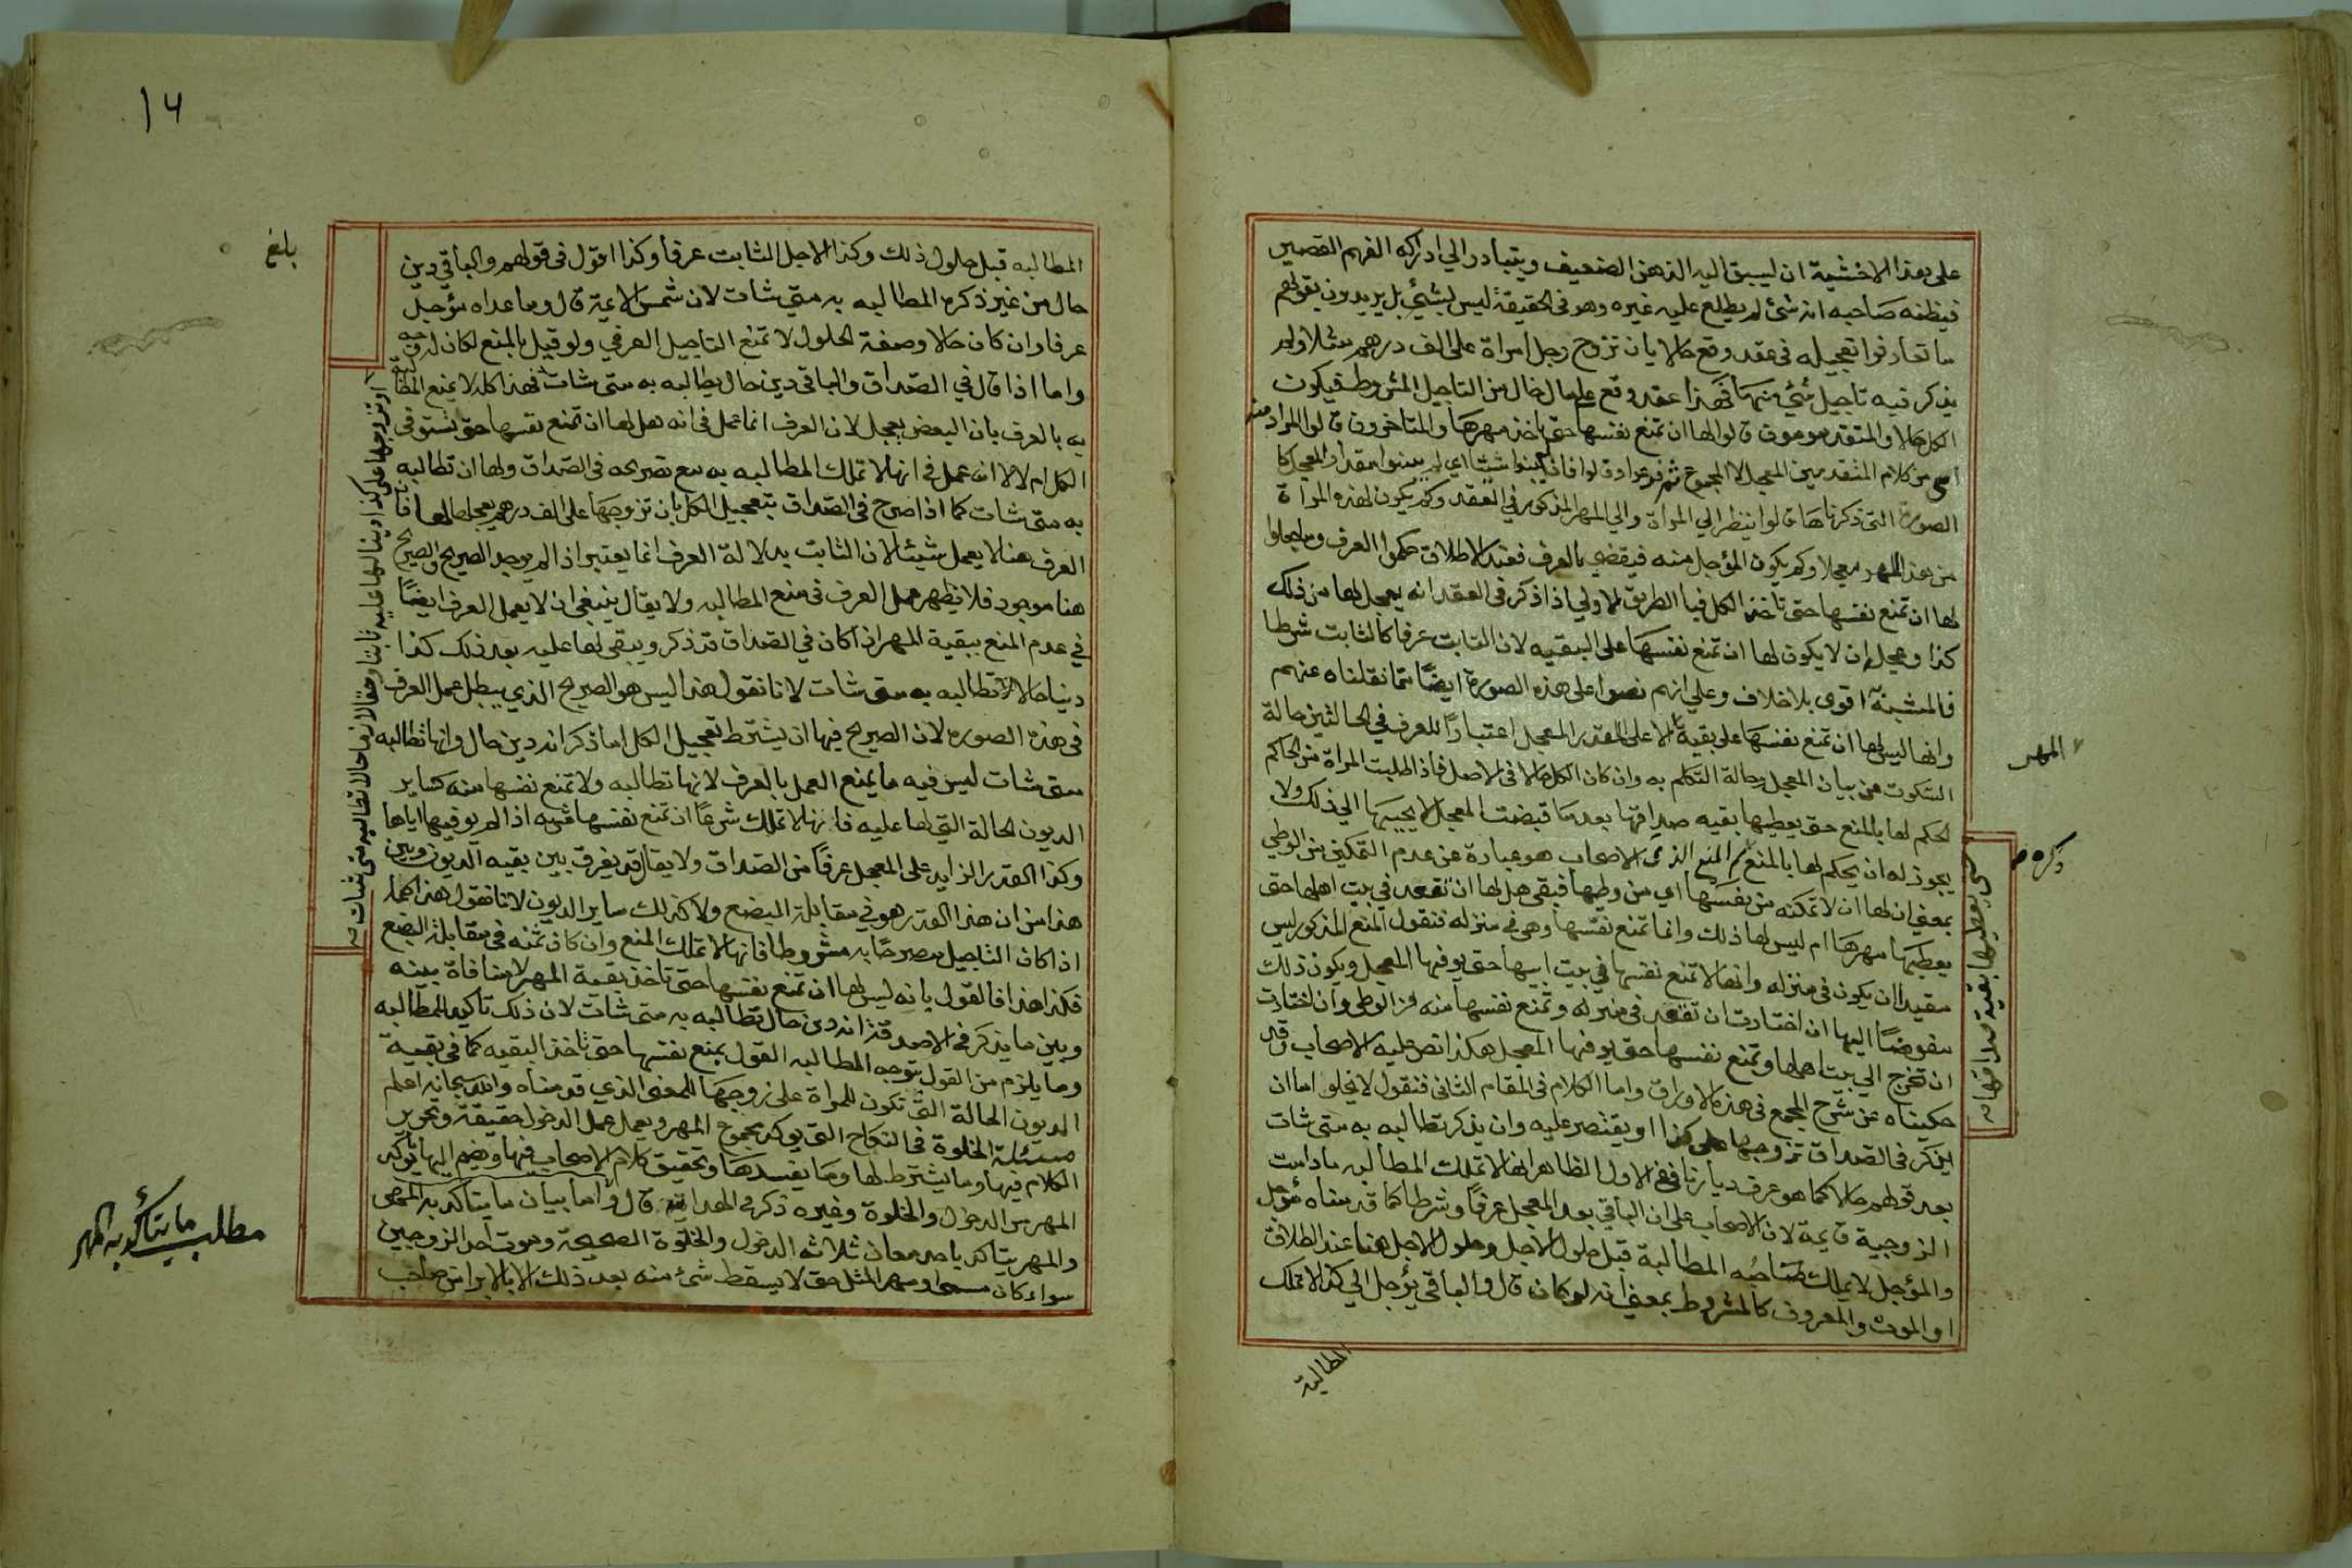 على هذا الاخشية ان ليسبق اليه الذهن الضعيف ويتبادر الي ادراكه الفهم القصير
فيظنه صاحبه انه شئ لم يطلع عليه غيره وهو في الحقيقة ليس بشئ بل يريدون بقولهم
ما تعارفوا تعجيله في عقد وقع حالا بان تزوج رجل امراة على الف درهم مثلا ولم
يذكر فيه تاجيل شئ منها فهذا عقد وقع على مال خال من التاجيل المشروط فيكون
الكل حالا والمتقدمون قالوا لها ان تمنع نفسها حتى تاخذ مهرها والمتاخرون قالوا المراد منه
اى من كلام المتقدمين المعجل لا المجموع ثم فرعوا وقالوا فان لم يبينوا شيئا اي لم يبينوا مقدار المعجل كا
الصورة التي ذكرناها قالوا ينظر الي المراة والي المهر المذكور في العقد وكم يكون لهذه المراة
من هذا المهر معجلا وكم يكون المؤجل منه فيقضي بالعرف فعند الاطلاق حكموا العرف وما جعلوا
لها ان تمنع نفسها حتى تاخذ الكل فبا الطريق الاولي اذا ذكر في العقد انه يعجل لها من ذلك
كذا وعجل ان لا يكون لها ان تمنع نفسها على البقيه لان الثابت عرفا كالثابت شرطا
فالمشبه اقوى بلا خلاف وعلي انهم نصوا على هذه الصورة ايضا مما نقلناه عنهم
وانها ليس لها ان تمنع نفسها على بقية الا على القدر المعجل اعتبارا للعرف في الحالتين حالة
المهر
السكوت من بيان المعجل وحالة التكلم به وان كان الكل حالا في الاصل فاذا طلبت المراة من الحاكم
الحكم لها بالمنع حتى يعطيها بقيه صداقها بعد ما قبضت المعجل لا يجيبها الي ذلك ولا
يجوز له ان يحكم لها بالمنع ثم المنع الذى الاصحاب هو عبارة عن عدم التمكين من الوطي
ذكره
حتى يعطيها بقية صداقها
بمعنى ان لها ان لا تمكنه من نفسها اي من وطيها فبقي هل لها ان تقعد في بيت اهلها حتى
يعطيها مهرها ام ليس لها ذلك وانما تمنع نفسها وهي في منزله فنقول المنع المذكور ليس
مقيدا ان يكون في منزله وانها لا تمنع نفسها في بيت ابيها حتى يوفيها المعجل ويكون ذلك
مفوضا اليها ان اختارت ان تقعد في منزله وتمنع نفسها منه من الوطي وان اختارت
ان تخرج الي بيت اهلها وتمنع نفسها حتى يوفيها المعجل هكذا نص عليه الاصحاب وقد
حكيناه عن شرح المجمع في هذه الاوراق واما الكلام في المقام الثاني فنقول لا يخلو اما ان
يذكر في الصداق تزوجها على كذا او يقتصر عليه وان يذكر تطالبه به متى شات
بعد قولهم حالا كما هو عرف ديارنا ففي الاول الظاهر انها لا تملك المطالبه ما دامت
الزوجية قايمة لان الاصحاب على ان الباقي بعد المعجل عرفا وشرطا كما قدمناه مؤجل
والمؤجل لا يملك صاحبه المطالبة قبل حلول الاجل وحلول الاجل هنا عند الطلاق
او الموت والمعروف كالمشروط بمعنى انه لو كان قال والباقي يؤجل الي كذا لا تملك
المطالبة
١٦
بلغ
المطالبه قبل حلول ذلك وكذا الاجل الثابت عرفا وكذا اقول في قولهم والباقي دين
حال من غير ذكره المطالبه به متى شات لان شمس الائمة قال وما عداه مؤجل
عرفا وان كان حالا وصفة الحلول لا تمنع التاجيل العرفي ولو قيل بالمنع لكان له وجه
واما اذا قال في الصداق والباقي دين حال يطالبه به متى شات فهذا كله لا يمنع المطالبة
به بالعرف بان البعض يعجل لان العرف انما عمل في انه هل لها ان تمنع نفسها حتى تستوفي
الكل ام لا لا انه عمل في انها لا تملك المطالبه به مع تصريحه في الصداق ولها ان تطالبه
به متى شات كما اذا صرح في الصداق بتعجيل الكل بان تزوجها على الف درهم يعجلها لها فان
العرف هنا لا يعمل شيئا لان الثابت بدلالة العرف انما يعتبر اذا لم يوجد الصريح والصريح
هنا موجود فلا يظهر عمل العرف في منع المطالبه ولا يقال ينبغي ان لا يعمل العرف ايضا
في عدم المنع ببقية المهر اذا كان في الصداق قد ذكر ويبقى لها عليه بعد ذلك كذا
دينا حالا تطالبه به متى شات لانا نقول هذا ليس هو الصريح الذي يبطل عمل العرف
في هذه الصوره لان الصريح فيها ان يشترط تعجيل الكل اما ذكر انه دين حال وانها تطالبه
متى شات ليس فيه ما يمنع العمل بالعرف لانها تطالبه ولا تمنع نفسها منه كساير
الديون الحالة التي لها عليه فانها لا تملك شرعا ان تمنع نفسها منه اذا لم يوفيها اياها
وكذا القدر الزايد على المعجل عرفا من الصداق ولا يقال قد يفرق بين بقيه الديون وبين
هذا من ان هذا القدر هو في مقابلة البضع ولا كذلك ساير الديون لانا نقول هذا كما
اذا كان التاجيل مصرحا به مشروطا فانها لا تملك المنع وان كان ثمنه في مقابلة البضع
فكذا هذا فالقول بانه ليس لها ان تمنع نفسها حتى تاخذ بقية المهر لا منافاة بينه
وبين ما يذكر في الاصدقة انه دين حال تطالبه به متى شات لان ذلك تاكيد للمطالبه
وما يلزم من القول بتوجه المطالبه القول بمنع نفسها حتى تاخذ البقيه كما في بقية
الديون الحالة التي تكون للمراة على زوجها للمعنى الذي قدمناه والله سبحانه اعلم
مسئلة الخلوة في النكاح التي يوكد مجموع المهر ويعمل عمل الدخول حقيقة وتحرير
الكلام فيها وما يشترط لها وما يفسدها وتحقيق كلام الاصحاب فيها ويضم اليها تاكيد
المهر من الدخول والخلوة وغيره ذكره في الهداية قال واما بيان ما يتاكد به المهر
والمهر يتاكد باحد معان ثلاثه الدخول والخلوة الصحيحة وموت احد الزوجين
سواء كان مسمى او مهر المثل حتى لا يسقط شئ منه بعد ذلك الا بالابرا من صاحب
مطلب ما يتأكد به المهر